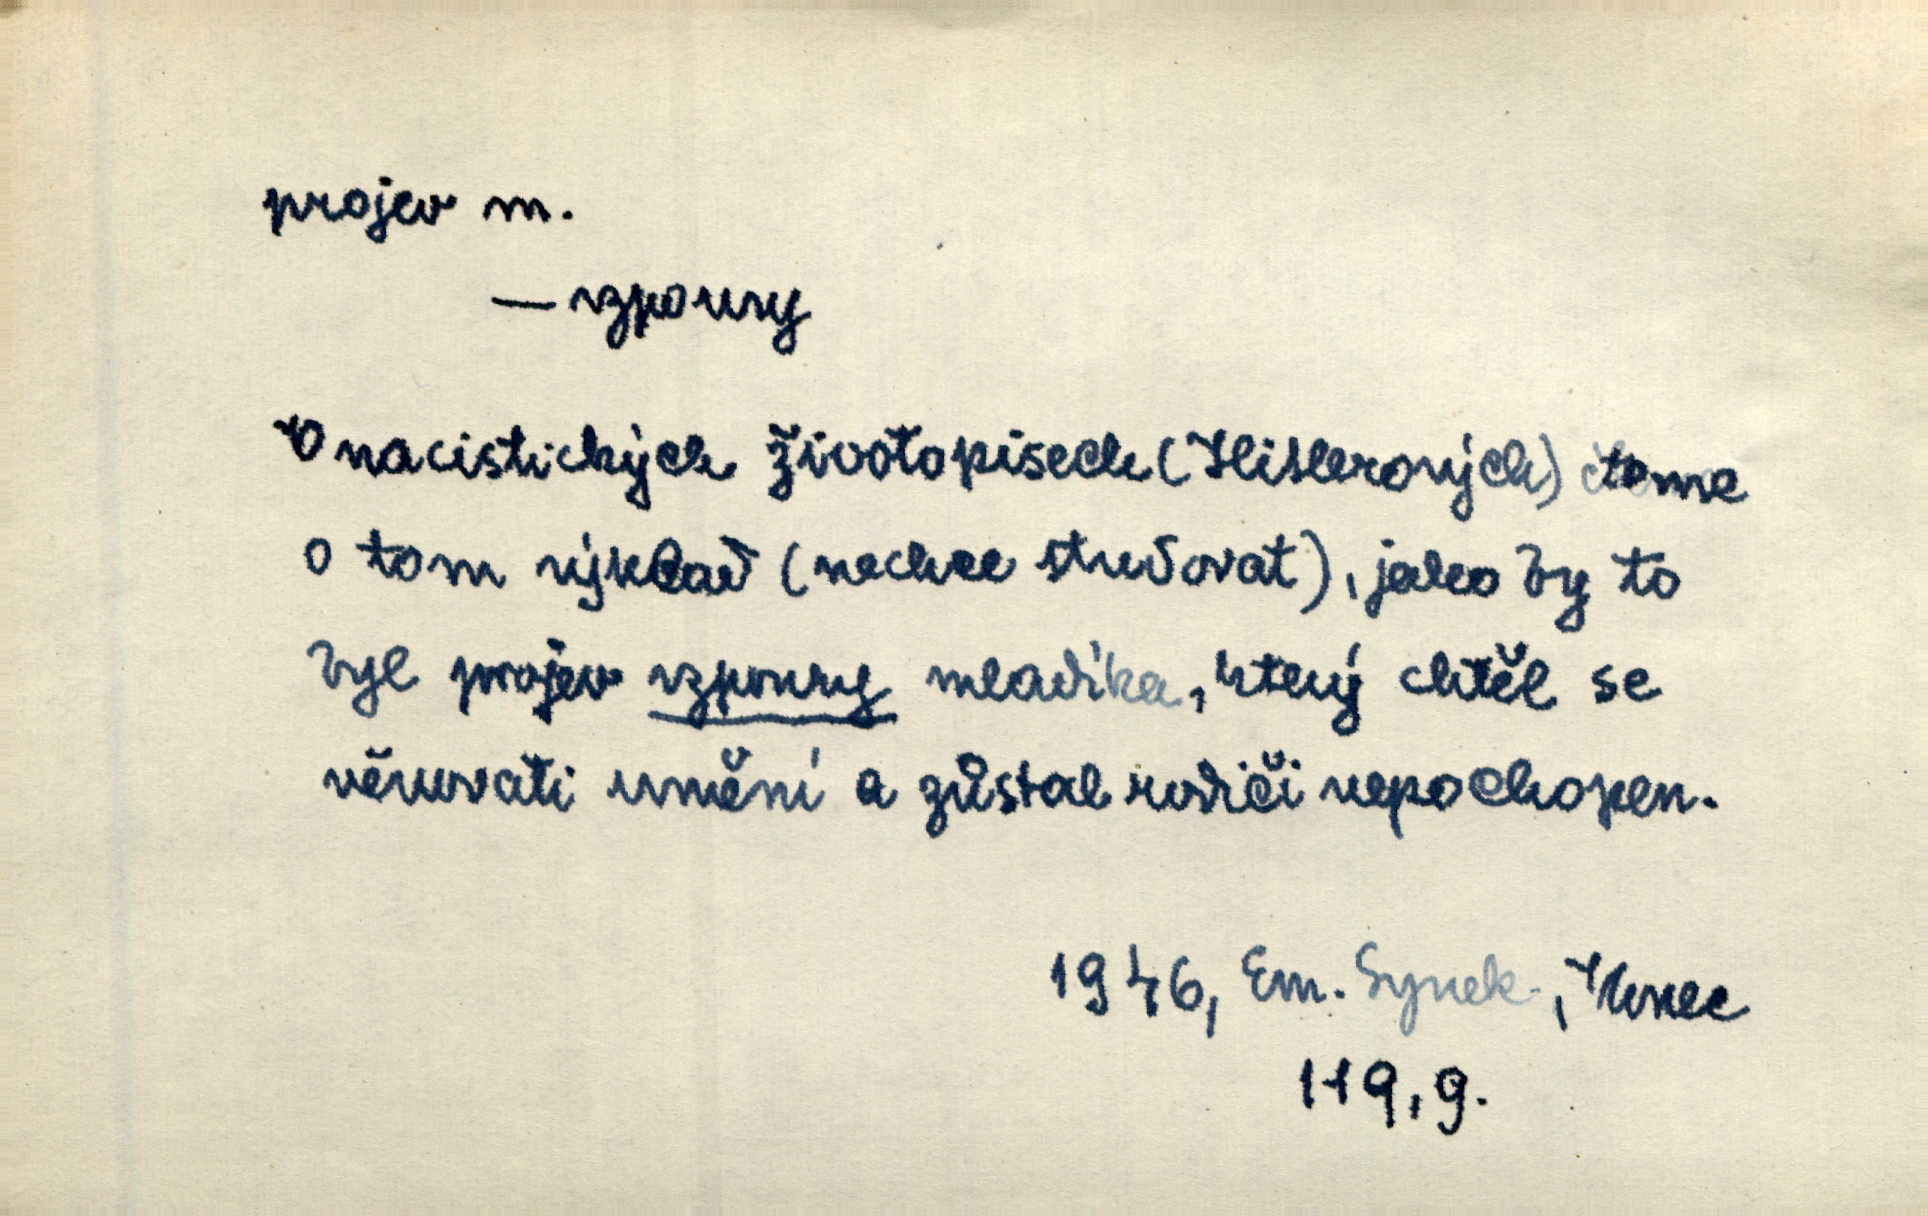 projev m.
— vzpoury
V nacistických životopisech (Hitlerových) čteme
o tom výklad (nechce studovat), jako by to
byl projev vzpoury mladíka, který chtěl se
věnovati umění a zůstal rodiči nepochopen.
1946, Em. Synek,
119,9.